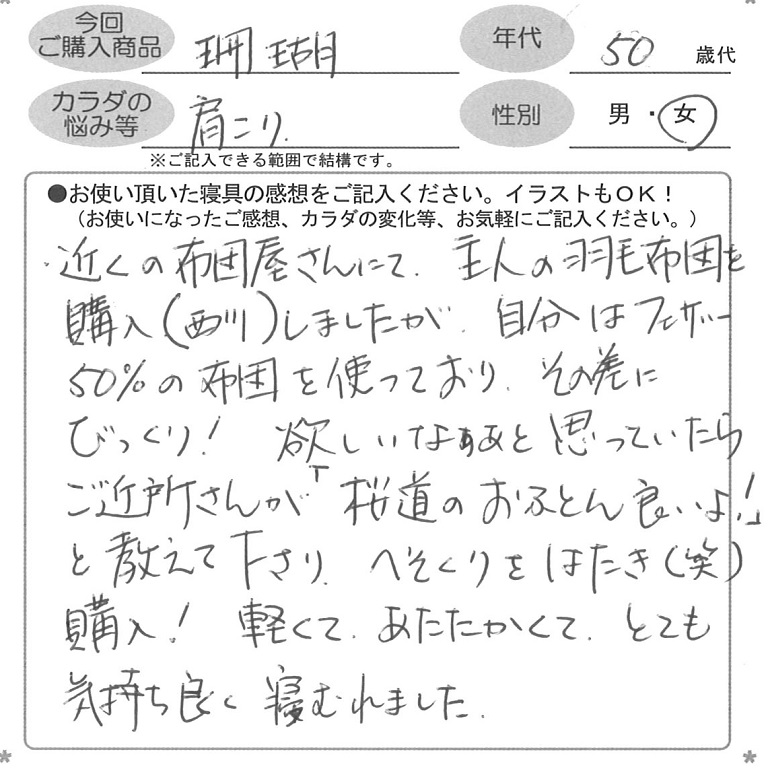 今回
ご購入商品 珊瑚 年代 50 歳代
カラダの
悩み等 肩こり. 性別 男・女
※ご記入できる範囲で結構です。
●お使い頂いた寝具の感想をご記入ください。イラストもOK！
（お使いになったご感想、カラダの変化等、お気軽にご記入ください。）
近くの布団屋さんにて. 主人の羽毛布団を
購入(西川)しましたが. 自分はフェザー
50%の布団を使っており. その差に
びっくり! 欲しいなぁあと思っていたら
ご近所さんが「桜道のおふとん良いよ!」
と教えて下さり. へそくりをはたき(笑)
購入! 軽くて. あたたかくて. とても
気持ち良く寝むれました.